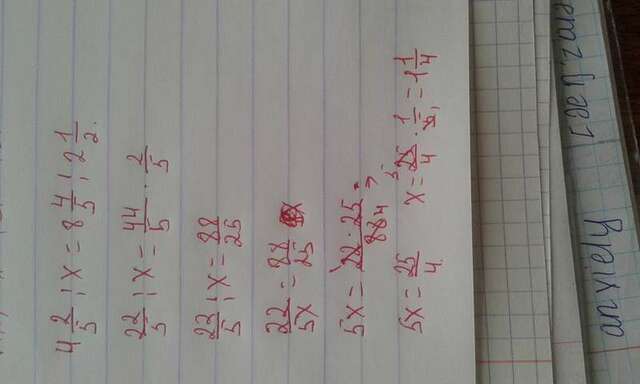 4 2/5 : X = 8 4/5 : 2 1/2.
22/5 : X = 44/5 · 2/5
22/5 : X = 88/25
22/5X = 88/25
5X = 22 · 25 / 88 4
5X = 25/4 X = 25/4 · 1/5 = 1 1/4
anxiely